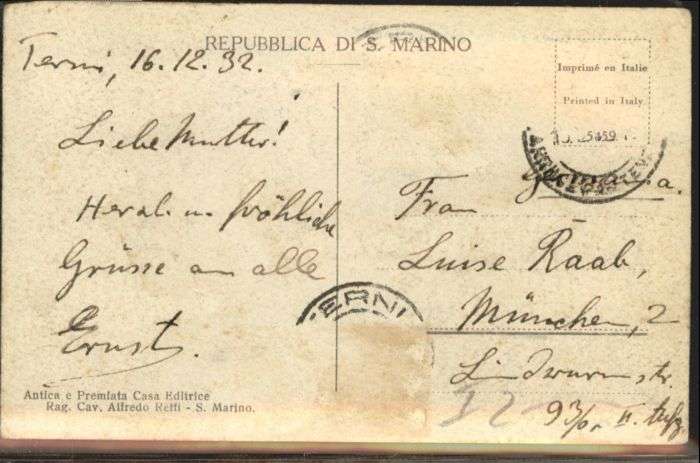 REPUBBLICA DI S. MARINO
Terni, 16.12.32.
Liebe Mutter!
Herzl. u. fröhliche
Grüsse an alle
Ernst.
Antica e Premiata Casa Editrice
Rag. Cav. Alfredo Reffi - S. Marino.
Imprimé en Italie
Printed in Italy
Germania.
Frau
Luise Raab,
München, 2
Lindwurmstr.
93/0 II. Aufg.
TERNI
12